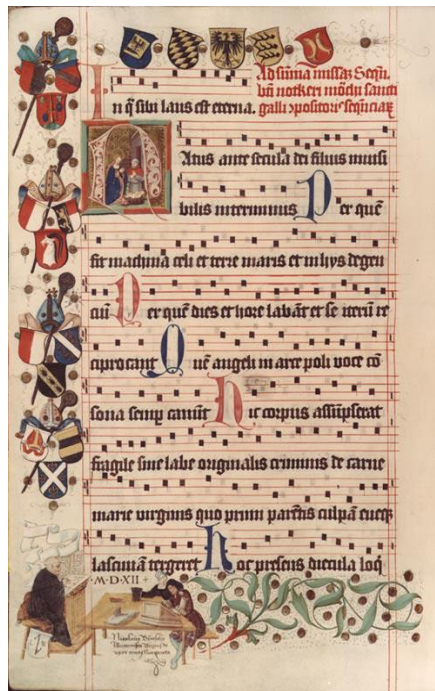 Ad sūmā missaȝ Seqn̄.
bn̄ notkeri mōchi sancti
In q̄ sibi laus est eterna. galli ɔpositoris seqn̄ciaꝝ
Natus ante secula dei filius inuisi
bilis interminus Per quē
fit machina celi et terre maris et in hys degen
ciū Per quē dies et hore labāt et se iterū re
ciprocant Quē angeli in arce poli voce cō
sona semp̄ canūt Hic corpus assūpserat
fragile sine labe originalis criminis de carne
marie virginis quo primi parētis culpā eueqȝ
lasciuiā tergeret Hoc presens diecula loq̄
·M·D·XII·